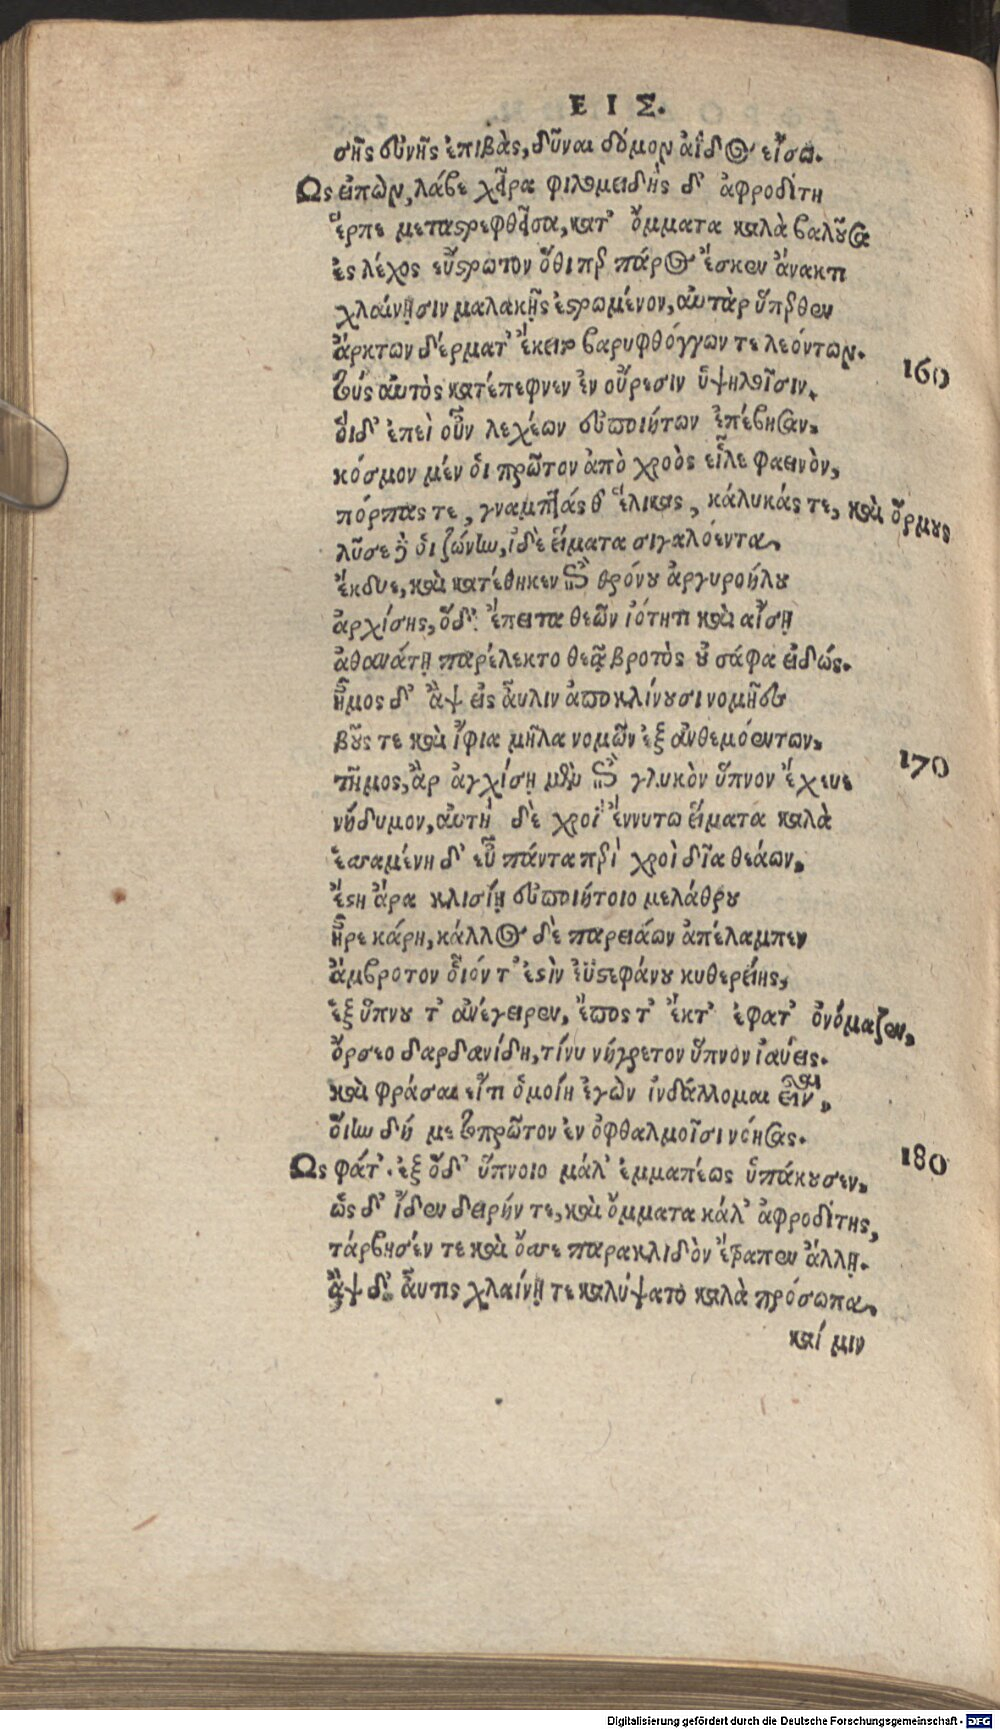 ΕΙΣ.
σῆς εὐνῆς ἐπιβὰς, δῦναι δόμον ἀΐδος εἴσω.
Ως εἰπὼν, λάβε χεῖρα φιλομειδὴς δ' ἀφροδίτη
ἕρπε μεταστρεφθεῖσα, κατ' ὄμματα καλὰ βαλοῦσα
ἐς λέχος εὔστρωτον ὅθι περ πάρος ἔσκεν ἄνακτι
χλαίνῃσιν μαλακῇς ἐστρωμένον, αὐτὰρ ὕπερθεν
ἄρκτων δέρματ' ἔκειτο βαρυφθόγγων τε λεόντων. 160
τοὺς αὐτὸς κατέπεφνεν ἐν οὔρεσιν ὑψηλοῖσιν.
ὅιδ' ἐπεὶ οὖν λεχέων εὐποιήτων ἐπέβησαν.
κόσμον μέν ὁι πρῶτον ἀπὸ χροὸς εἷλε φαεινὸν,
πόρπας τε, γναμπτάς θ' ἕλικας, κάλυκάς τε, καὶ ὅρμους
λῦσε δέ ὁι ζώνην, ἰδὲ εἵματα σιγαλόεντα.
ἔκδυε, καὶ κατέθηκεν ἐπὶ θρόνου ἀργυροήλου
ἀρχίσης, ὅδ' ἔπειτα θεῶν ἰότητι καὶ αἴσῃ
ἀθανάτῃ παρέλεκτο θεᾷ βροτὸς οὐ σάφα εἰδώς.
ἦμος δ' ἂψ εἰς αὖλιν ἀποκλίνουσι νομῆες
βοῦς τε καὶ ἴφια μῆλα νομῶν ἐξ ἀνθεμόεντων. 170
τῆμος, ἂρ ἀγχίσῃ μὲν ἐπὶ γλυκὸν ὕπνον ἔχευε
νήδυμον, αὐτὴ δὲ χροῒ ἕννυτο εἵματα καλὰ
ἑσσαμένη δ' εὖ πάντα περὶ χροὶ δῖα θεάων.
ἔστη ἄρα κλισίῃ εὐποιήτοιο μελάθρου
ἦρε κάρη, κάλλος δὲ παρειάων ἀπέλαμπεν
ἄμβροτον οἷόν τ' ἐστὶν ἐϋστεφάνου κυθερείης,
ἐξ ὕπνου τ' ἀνέγειρεν, ἔπος τ' ἔκτ' ἐφατ' ὀνόμαζεν,
ὄρσεο δαρδανίδη, τίνυ νήγρετον ὕπνον ἰαύεις.
καὶ φράσαι εἴτι ὁμοίη ἐγὼν ἰνδάλλομαι εἶναι,
ὅιην δή με τοπρῶτον ἐν ὀφθαλμοῖσι νόησας.
Ως φάτ'. ἐξ ὅδ' ὕπνοιο μάλ' ἐμμαπέως ὑπάκουσεν. 180
ὡς δ' ἴδεν δειρήν τε, καὶ ὄμματα κάλ' ἀφροδίτης,
τάρβησέν τε καὶ ὄσσε παρακλιδὸν ἔτραπεν ἄλλῃ.
ἂψ δ' αὖτις χλαίνῃ τε καλύψατο καλὰ πρόσωπα.
καί μιν
Digitalisierung gefördert durch die Deutsche Forschungsgemeinschaft - DFG